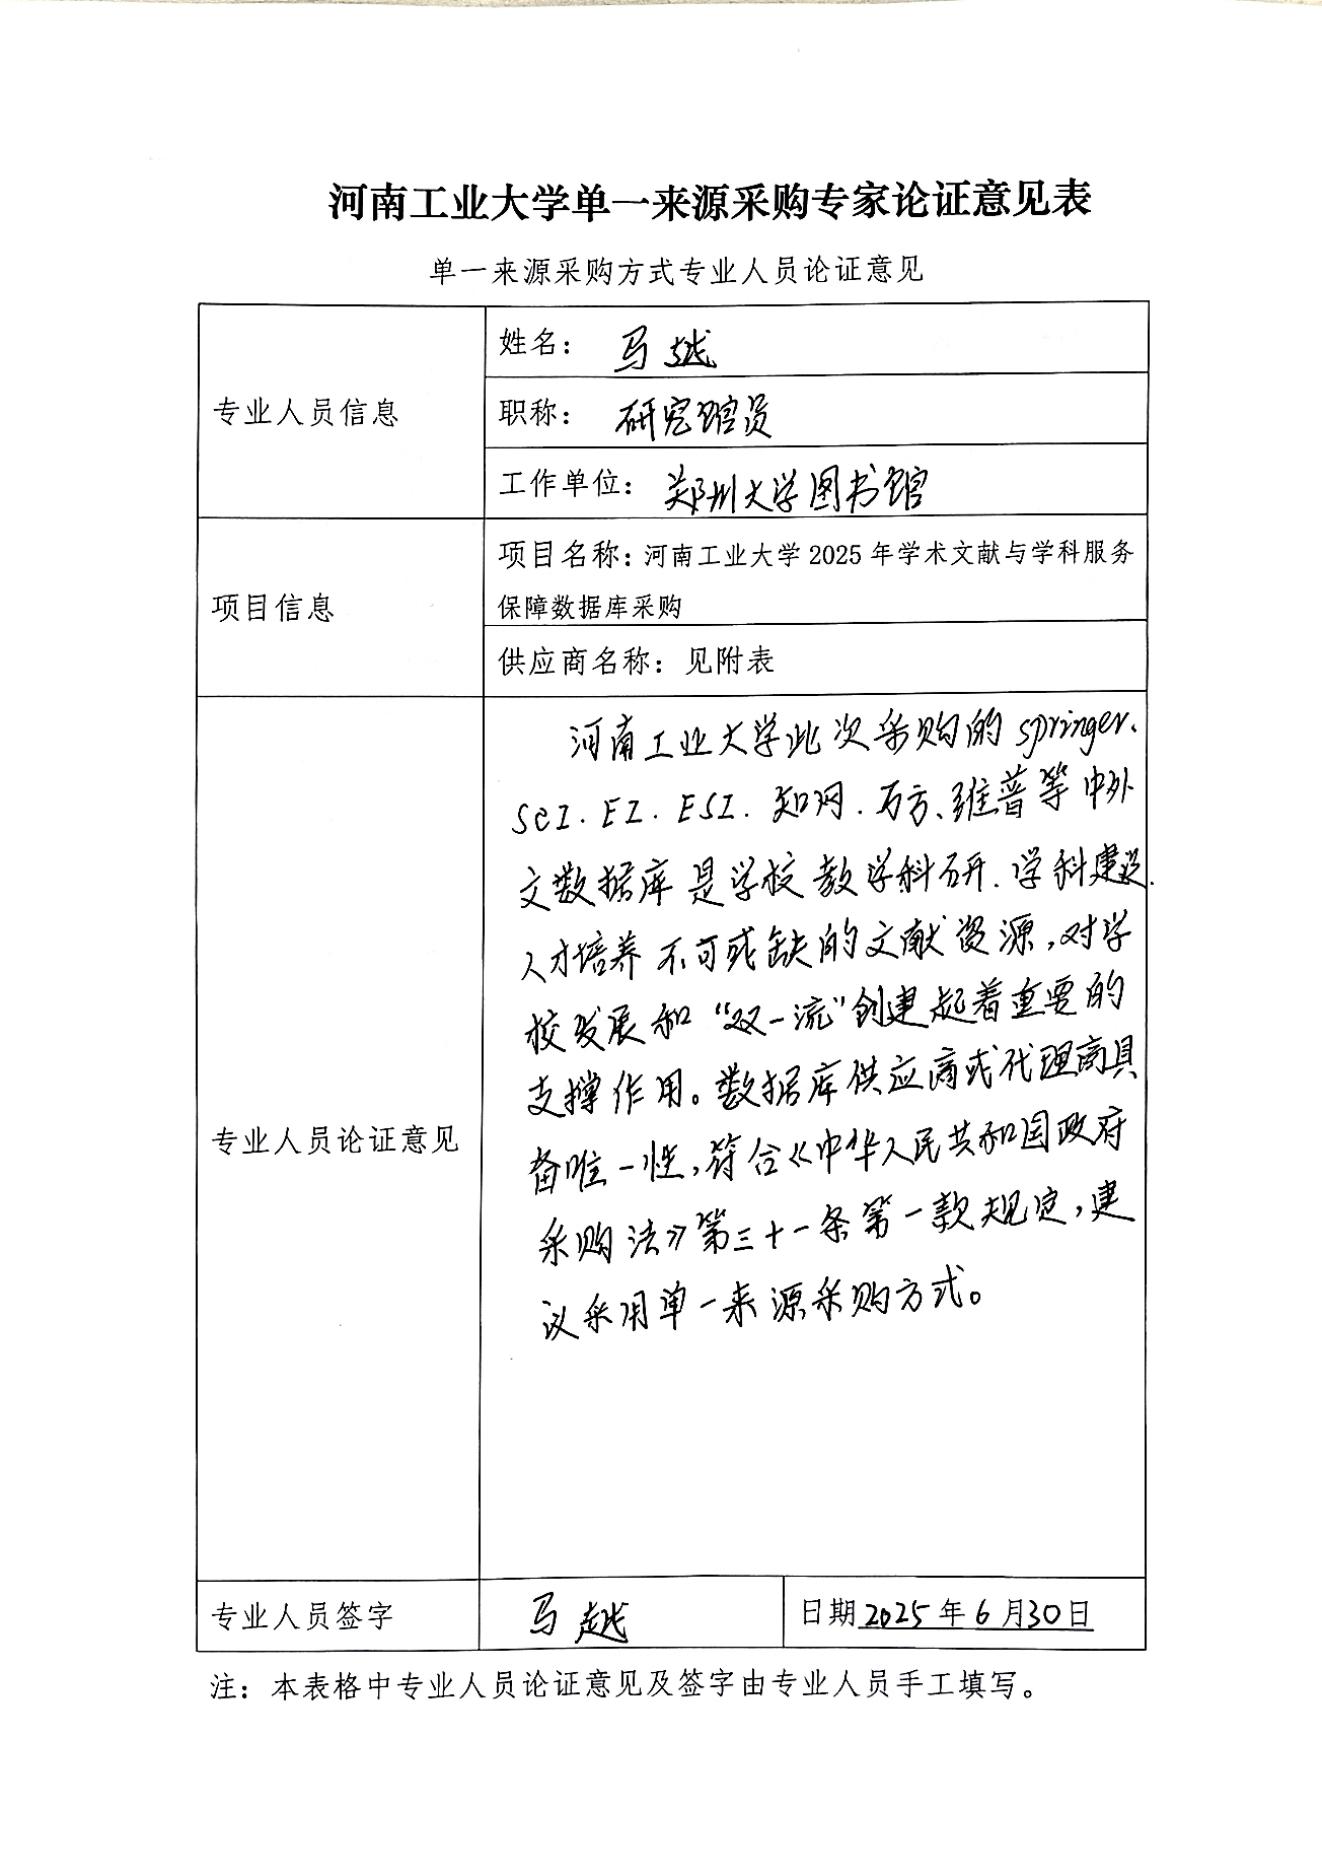 河南工业大学单一来源采购专家论证意见表
单一来源采购方式专业人员论证意见
专业人员信息
姓名：马越
职称：研究馆员
工作单位：郑州大学图书馆
项目信息
项目名称：河南工业大学 2025 年学术文献与学科服务
保障数据库采购
供应商名称：见附表
专业人员论证意见
河南工业大学此次采购的 springer、
SCI. EI. ESI. 知网. 万方、维普等中外
文数据库是学校教学科研. 学科建设.
人才培养不可或缺的文献资源,对学
校发展和“双一流”创建起着重要的
支撑作用。数据库供应商或代理商具
备唯一性,符合《中华人民共和国政府
采购法》第三十一条第一款规定,建
议采用单一来源采购方式。
专业人员签字
马越
日期 2025 年 6 月 30 日
注：本表格中专业人员论证意见及签字由专业人员手工填写。